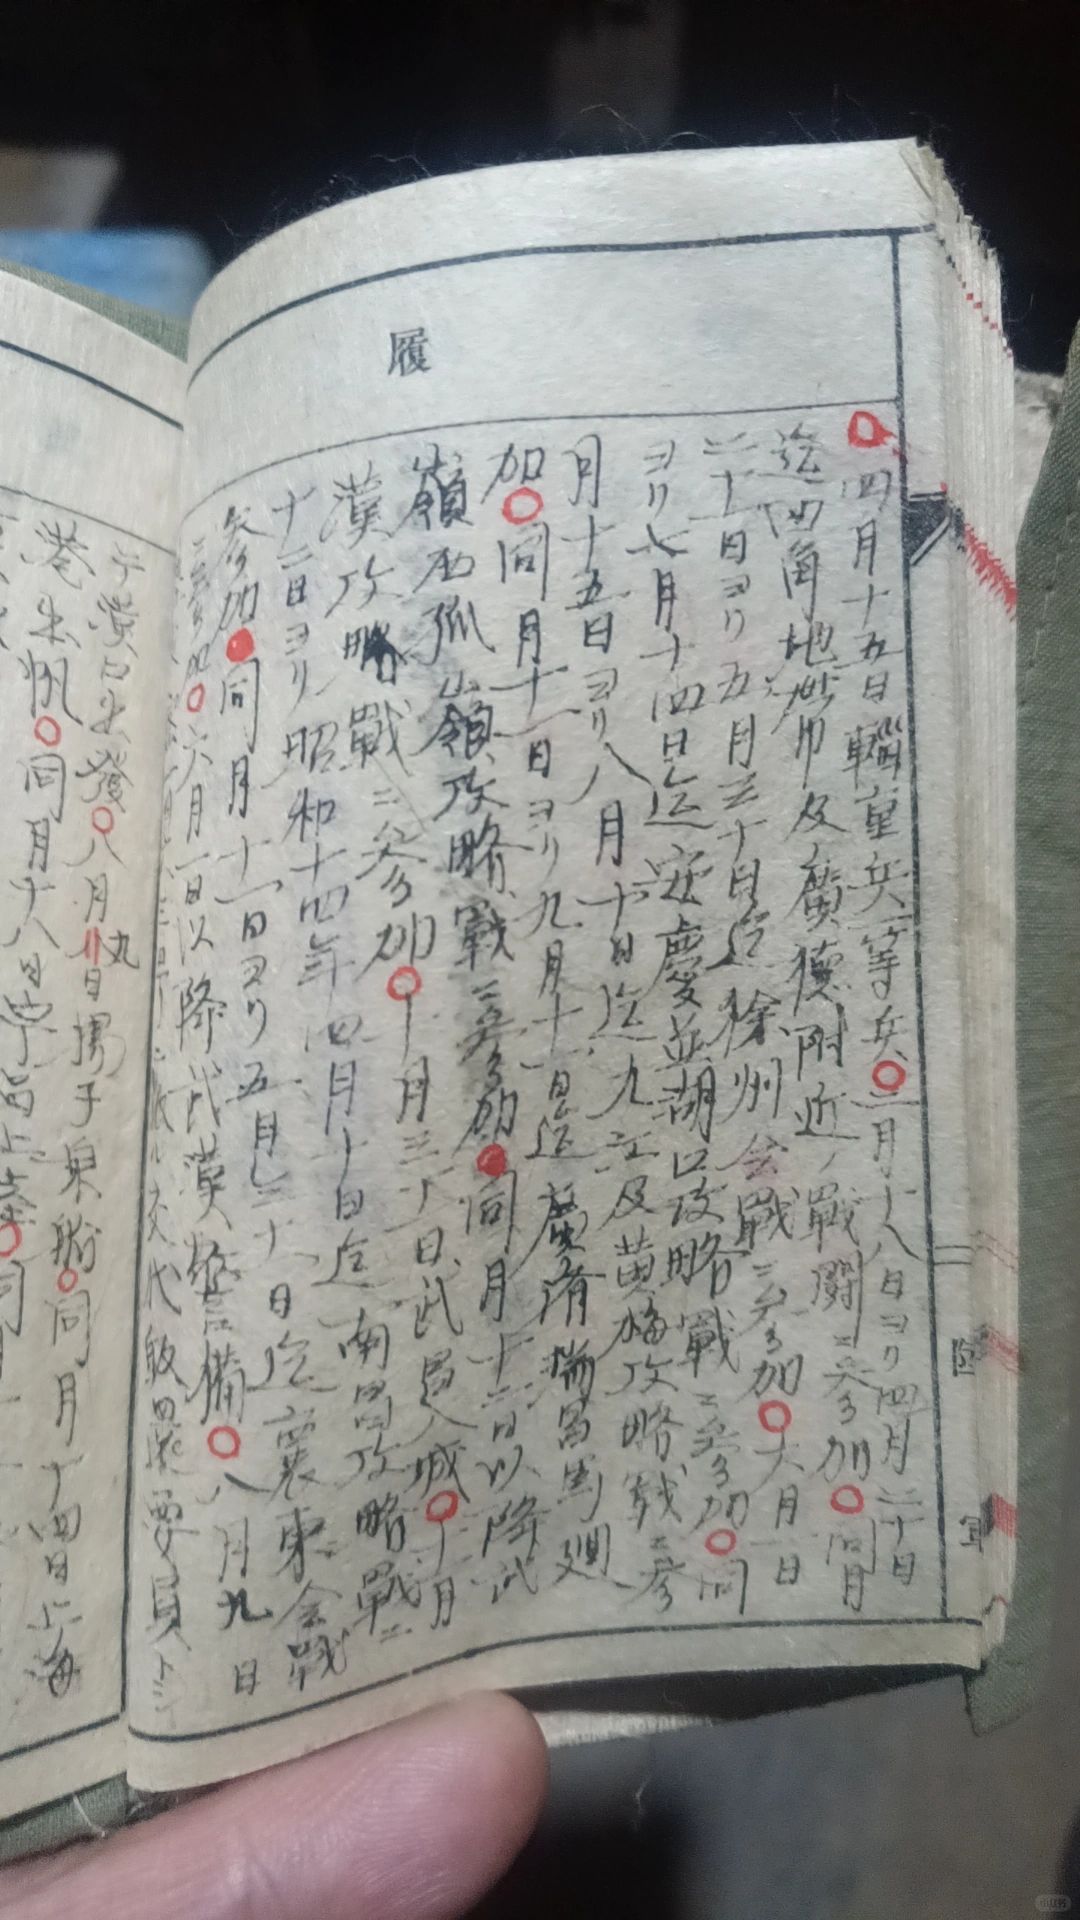 履
四月十五日輜重兵一等兵三月十八日ヨリ四月二十日
迄四角地帶及廣德附近ノ戰鬪ニ参加同月
二十一日ヨリ五月三十日迄徐州会戰ニ参加六月一日
ヨリ七月十四日迄安慶並湖口攻略戰ニ参加同
月十五日ヨリ八月十日迄九江及黄梅攻略戦ニ参
加同月十一日ヨリ九月十一日迄廣濟瑞昌馬廻
嶺西孤山嶺攻略戰ニ参加同月十二日以降武
漢攻略戰ニ参加十月三十一日武昌入城十一月
十二日ヨリ昭和十四年四月十日迄南昌攻略戰ニ
参加同月十一日ヨリ五月三十一日迄襄東会戦
ニ参加六月一日以降武漢警備八月九日
交代歸還要員トシ
テ漢口出發八月九日揚子泉
同月十四日上海
港出帆同月十八日
陸軍